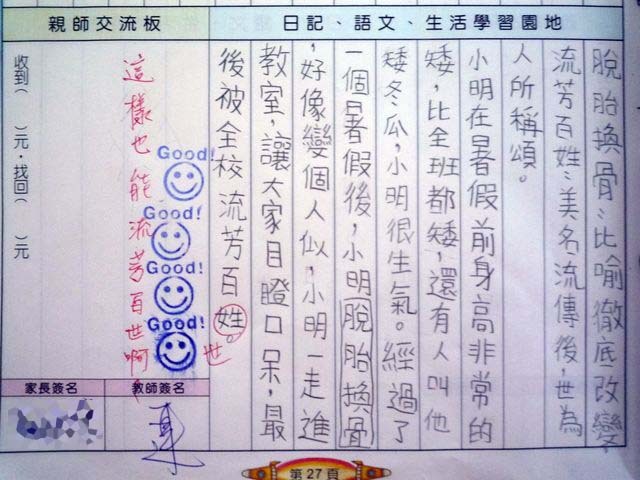 日記、語文、生活學習園地
脫胎換骨:比喻徹底改變
流芳百姓:美名流傳後,世為
人所稱頌。
小明在暑假前身高非常的
矮,比全班都矮,還有人叫他
矮冬瓜,小明很生氣。經過了
一個暑假後,小明脫胎換骨
,好像變個人似,小明一走進
教室,讓大家目瞪口呆,最
後被全校流芳百姓。
世
親師交流板
Good!
Good!
Good!
Good!
這樣也能流芳百世啊
收到( )元,找回( )元
教師簽名
家長簽名
第27頁